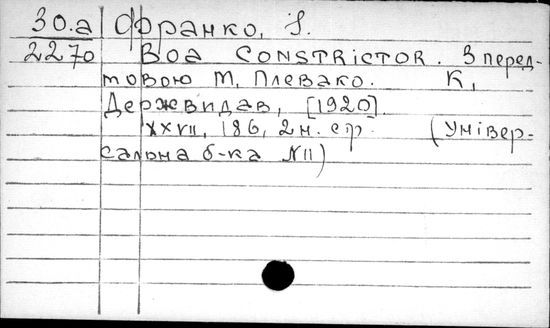 30.а Франко, І.
2270 Boa constrictor. З перед-
мовою М. Плевако. К.,
Держвидав, [1920].
XXVII, 186, 2 н. стр. (Універ-
сальна б-ка №11)